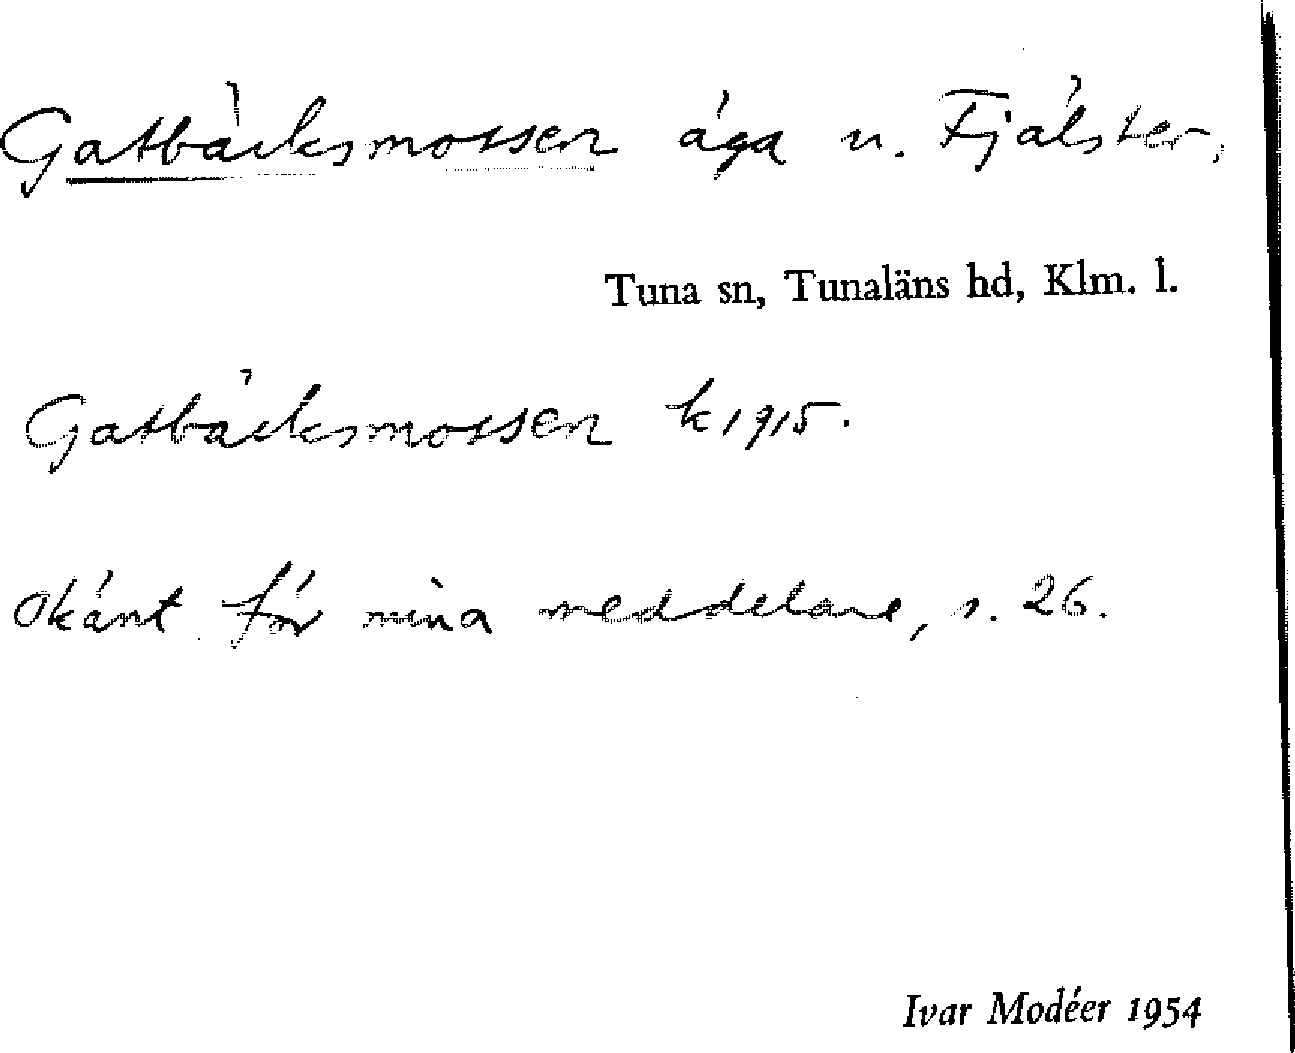 Gatbäcksmossen äga u. Fjälster,
Tuna sn, Tunaläns hd, Klm. l.
Gatbäcksmossen k 1915.
Okänt för mina meddelare, s. 26.
Ivar Modéer 1954